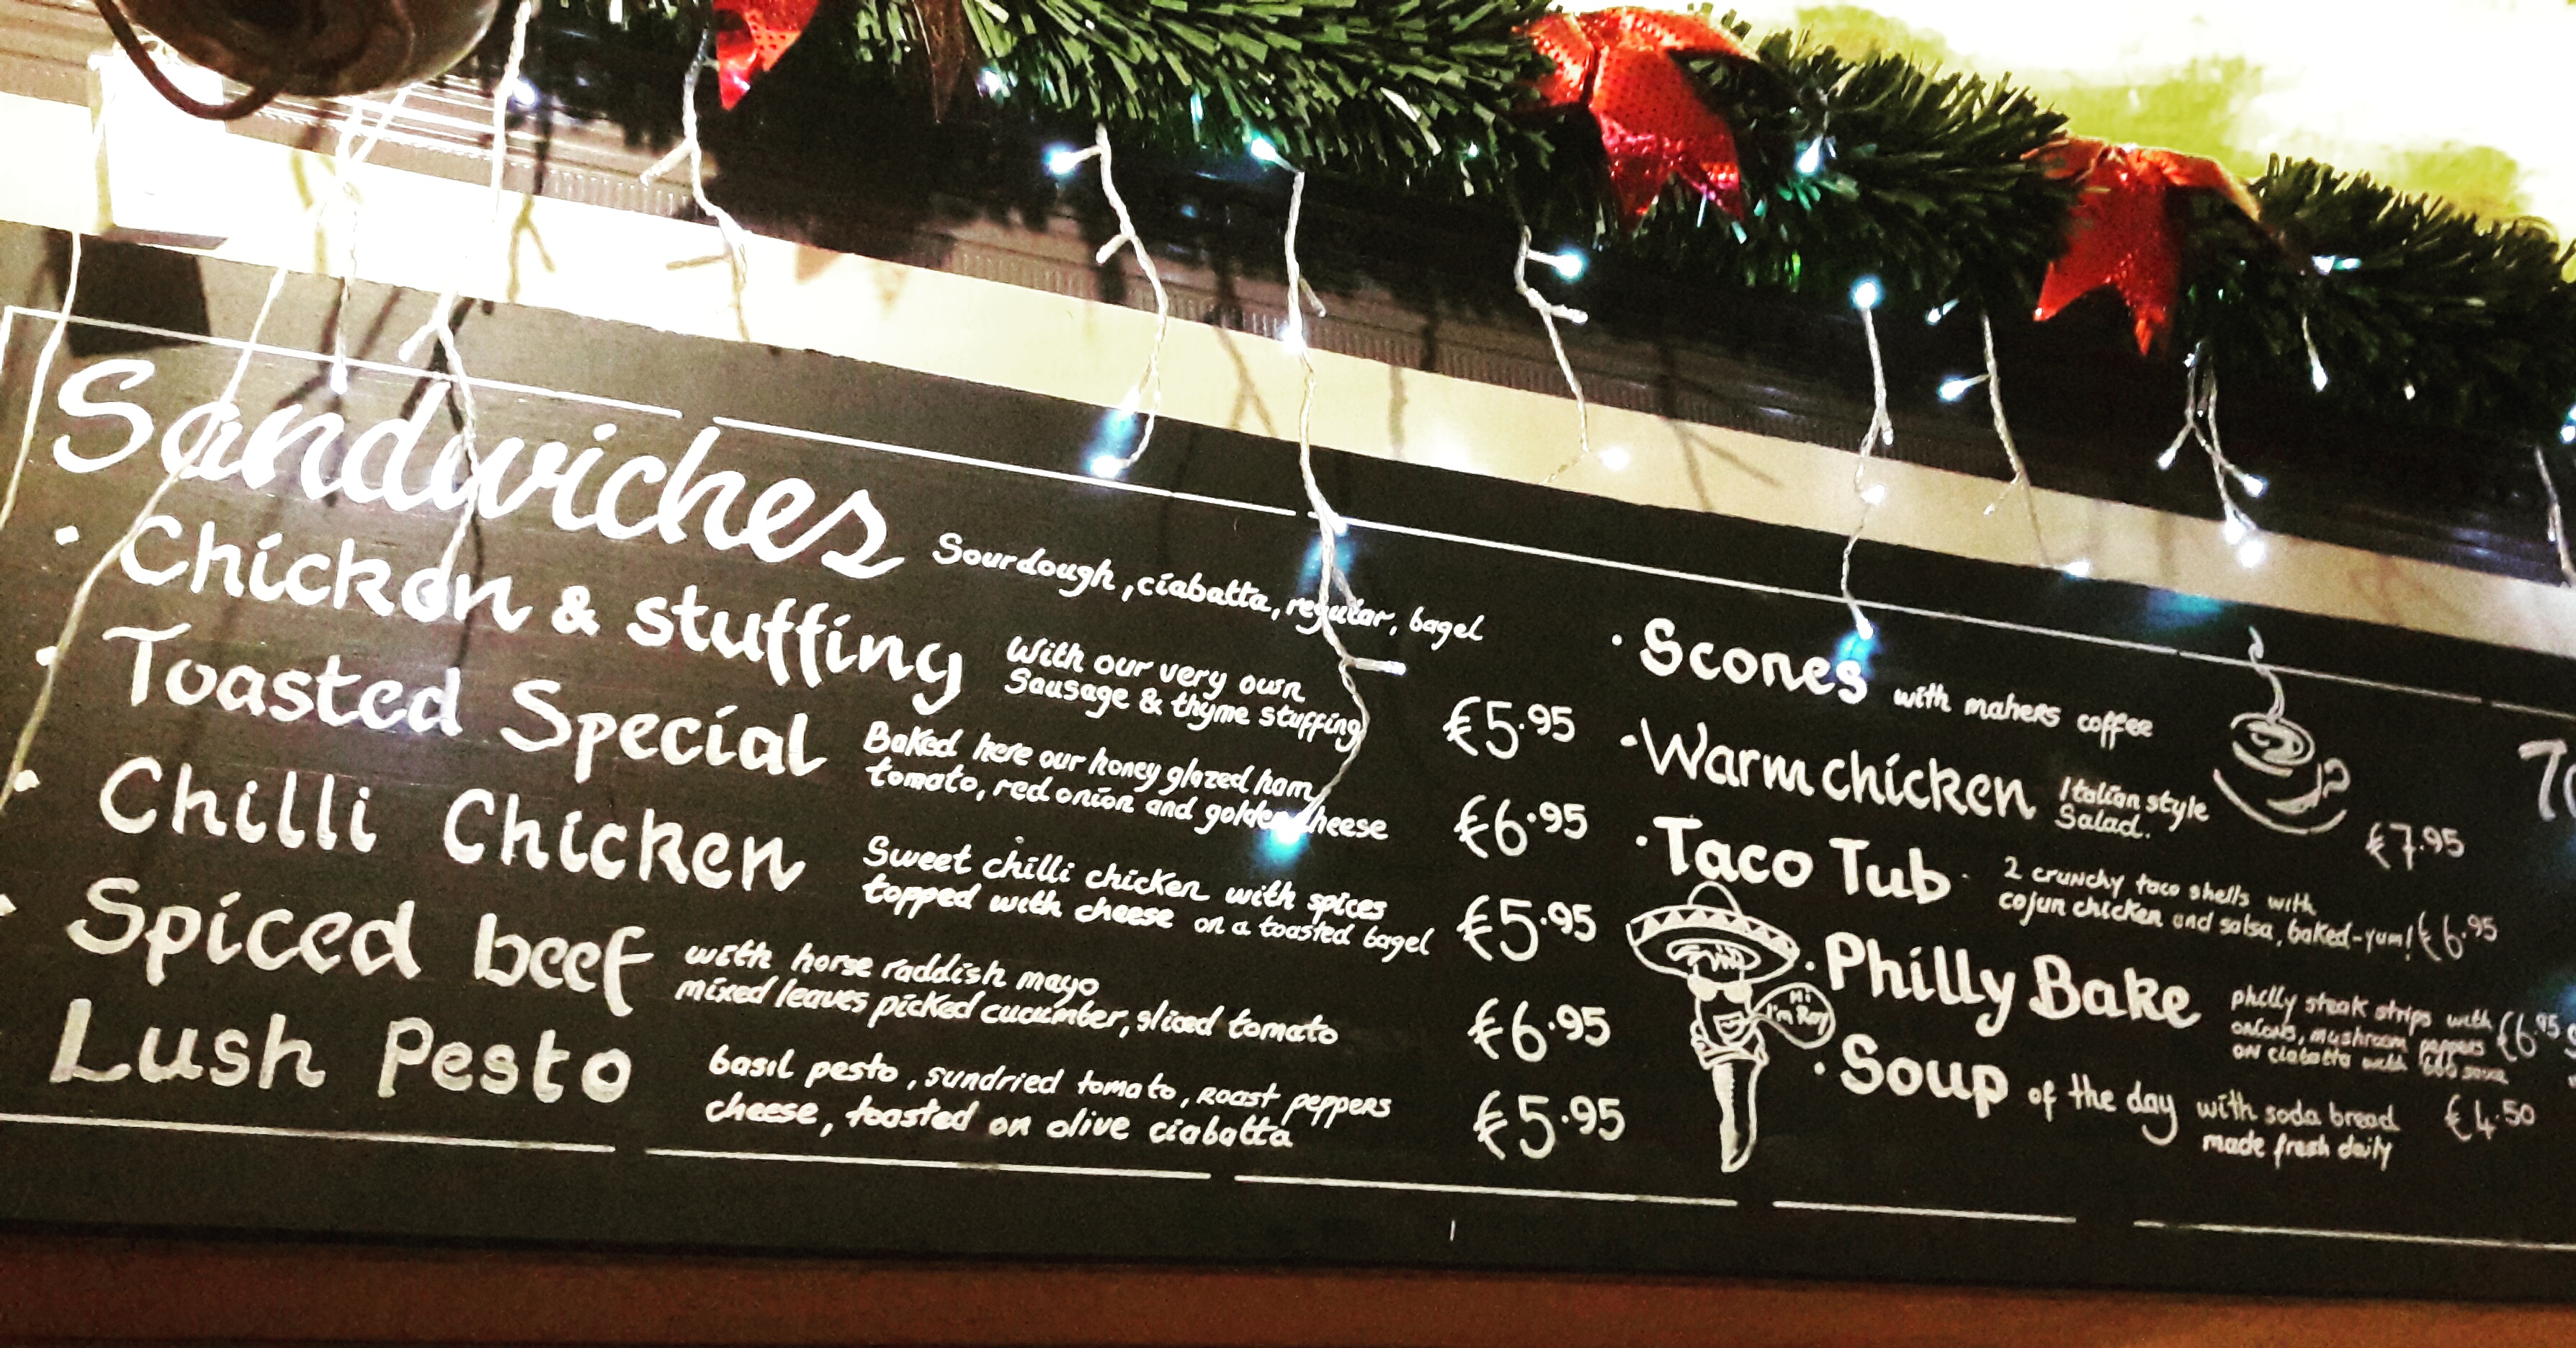 Sandwiches Sourdough, ciabatta, regular, bagel
· Chicken & stuffing With our very own
Sausage & thyme stuffing €5.95
· Toasted Special Baked here our honey glazed ham
tomato, red onion and golden cheese €6.95
· Chilli Chicken Sweet chilli chicken with spices
topped with cheese on a toasted bagel €5.95
· Spiced beef with horse raddish mayo
mixed leaves picked cucumber, sliced tomato €6.95
Lush Pesto basil pesto, sundried tomato, roast peppers
cheese, toasted on olive ciabatta €5.95
· Scones with mahers coffee
· Warm chicken Italian style
Salad. €7.95
· Taco Tub 2 crunchy taco shells with
cajun chicken and salsa, baked-yum! €6.95
Hi
I'm Roy
· Philly Bake philly steak strips with
onions, mushroom peppers
on ciabatta with €6.95
· Soup of the day with soda bread
made fresh daily €4.50